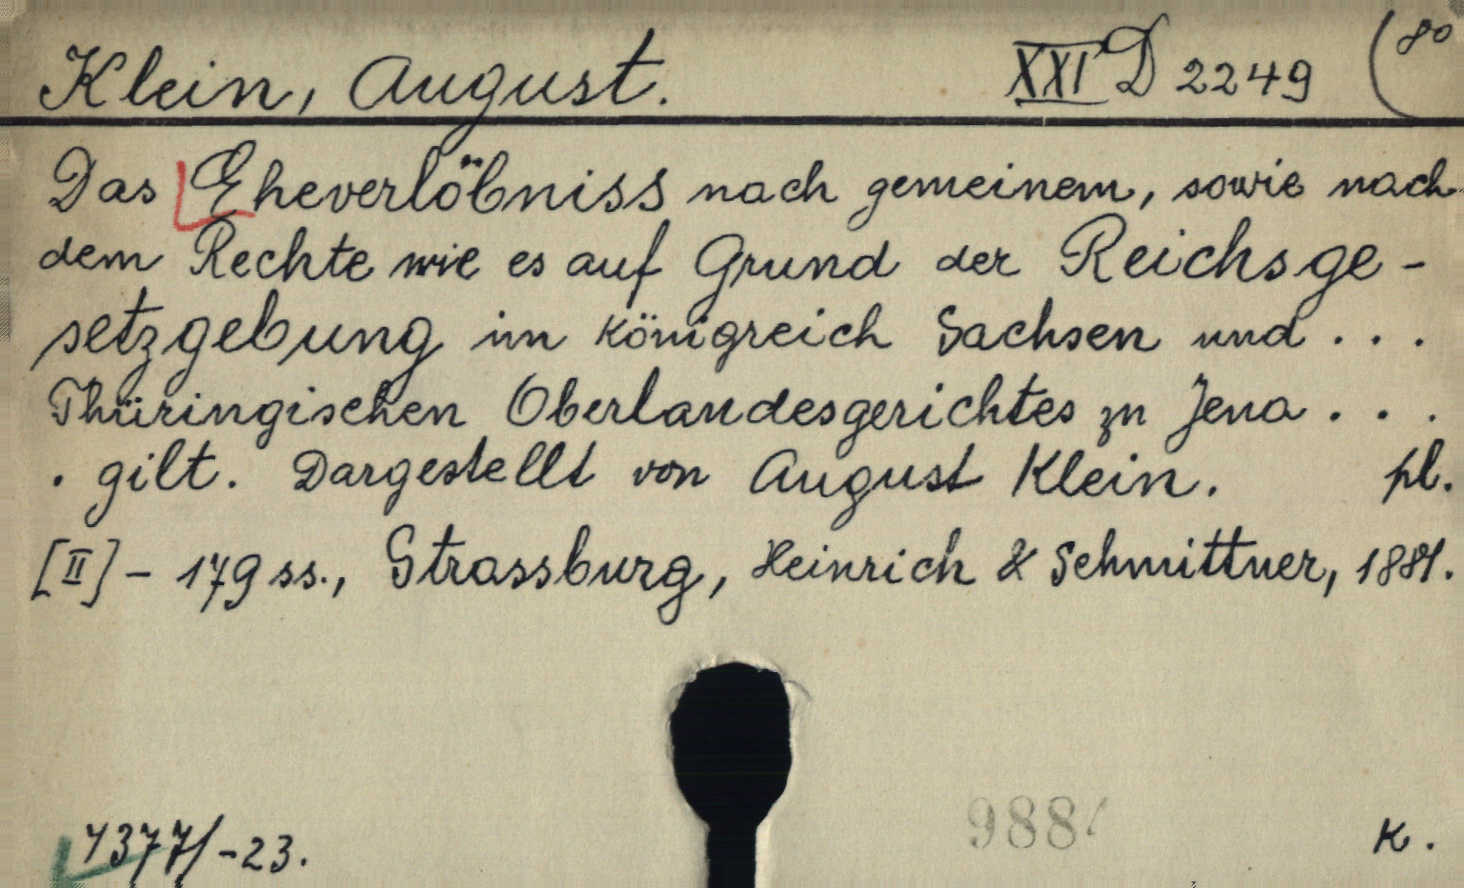 Klein, August. XXI D 2249 (8o
Das Eheverlöbniss nach gemeinem, sowie nach
dem Rechte wie es auf Grund der Reichsge-
setzgebung im Königreich Sachsen und . . .
Thüringischen Oberlandesgerichtes zu Jena . . .
. gilt. Dargestellt von August Klein. pl.
[II] - 179 ss., Strassburg, Heinrich & Schmittner, 1881.
988
4377/-23. K.